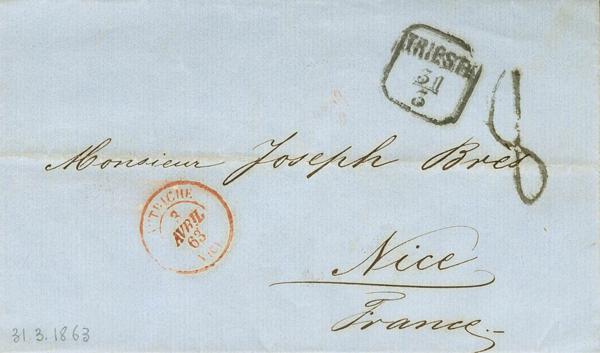 TRIEST
31
3
8
Monsieur Joseph Bres
AUTRICHE
3
AVRIL
63
Nice
France.-
31.3.1863